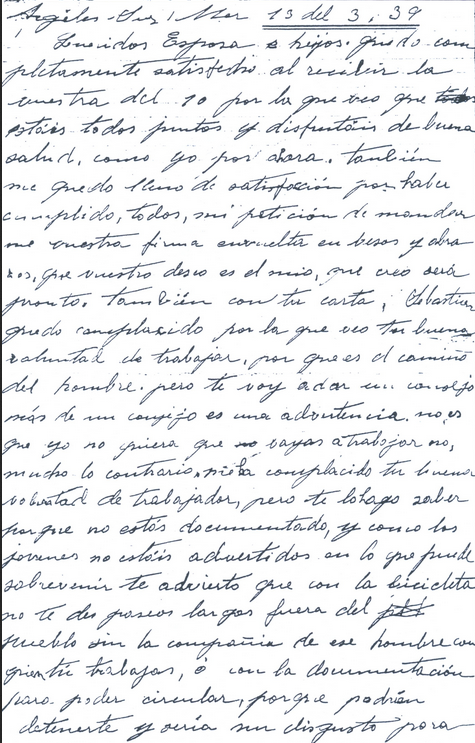 Argèles-Sur-Mer 13 del 3, 39
Queridos Esposa e hijos. quedo com
pletamente satisfecho al recibir la
vuestra del 10 por la que veo que
estáis todos juntos y disfrutáis de buena
salud, como yo por ahora. también
me quedo lleno de satisfación por haber
cumplido, todos, mi petición de mandar
me vuestra firma envuelta en besos y abra
zos, que vuestro deseo es el mio, que creo será
pronto. también con tu carta, Sebastian
quedo complacido por la que veo tu buena
voluntad de trabajar, por que es el camino
del hombre. pero te voy a dar un consejo
más de un consejo es una advertencia. no, es
que yo no quiera que vayas a trabajar no,
mucho lo contrario, complacido tu buena
voluntad de trabajador, pero te lo hago saber
porque no estás documentado, y como los
jovenes no estáis advertidos en lo que puede
sobrevenir te advierto que con la bicicleta
no te des paseos largos fuera del
pueblo sin la compañia de ese hombre con
quien tu trabajas, ó con la documentación
para poder circular, porque podrían
detenerte y sería un disgusto para